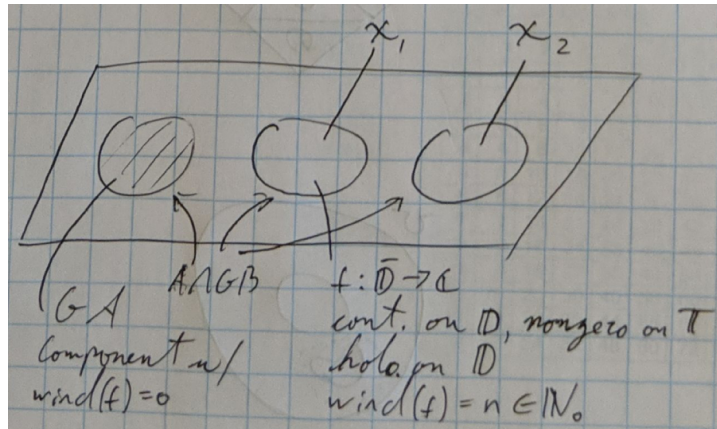 x₁ x₂
A∩GB
GA
component w/
wind(f)=0
f: 𝔻̄→ℂ
cont. on 𝔻, nonzero on 𝕋
holo. on 𝔻
wind(f) = n ∈ ℕ₀